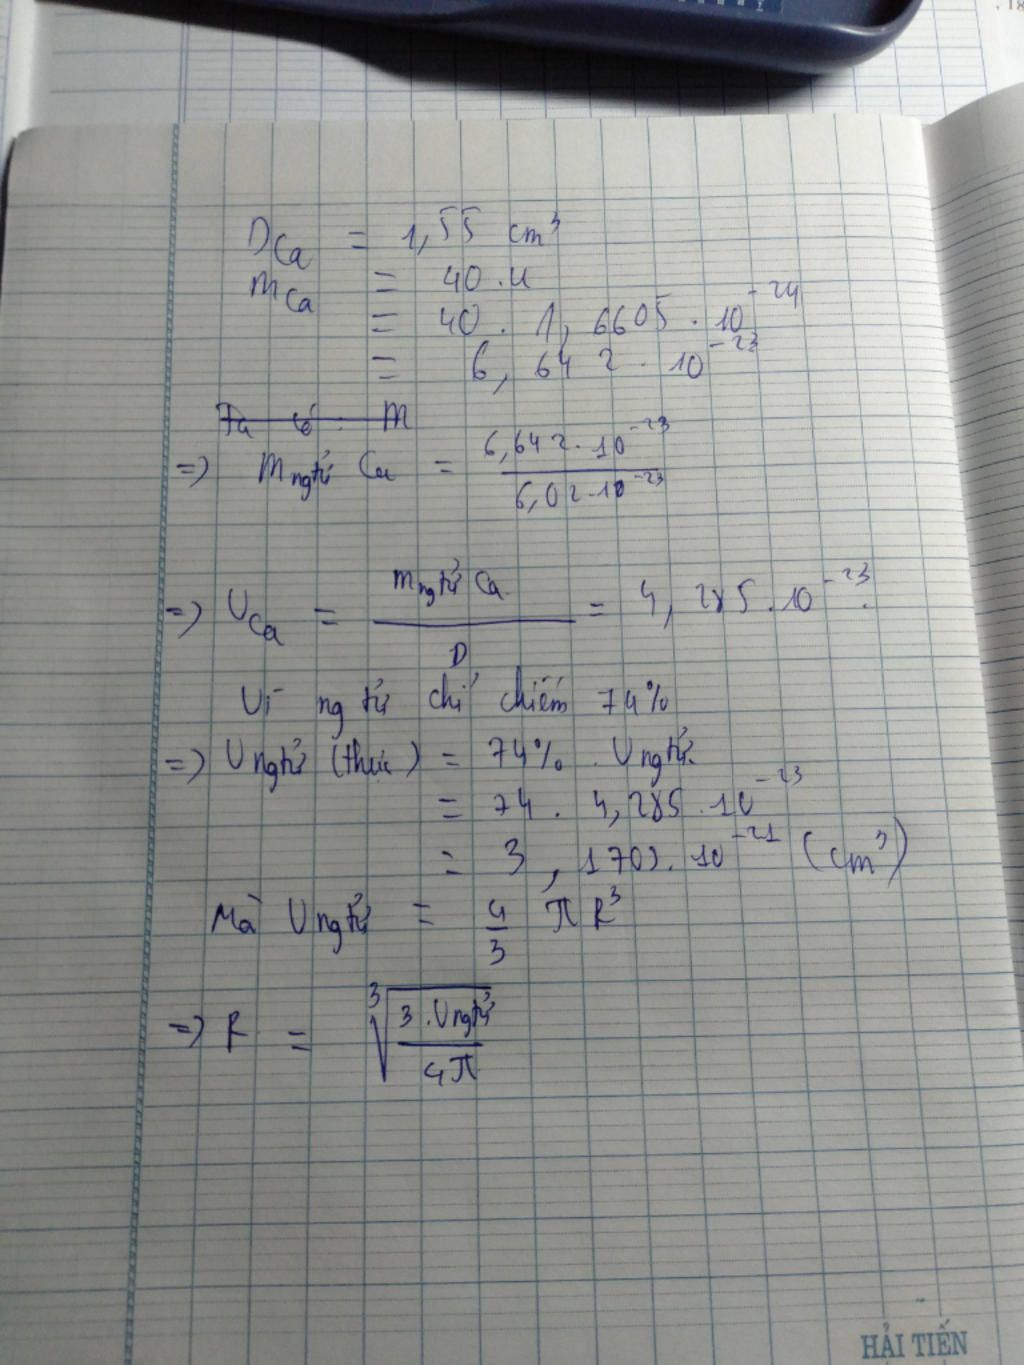 D_Ca = 1,55 cm³
m_Ca = 40.u
= 40 . 1,6605 . 10⁻²⁴
= 6,642 . 10⁻²³
Ta có: m
=> m_ngtử Ca = 6,642.10⁻²³ / 6,02.10⁻²³
=> V_Ca = m_ngtử Ca / D = 4,285.10⁻²³.
Vì ngtử chỉ chiếm 74%
=> V ngtử (thực) = 74% . V ngtử
= 74 . 4,285.10⁻²³
= 3,1709.10⁻²¹ (cm³)
Mà V ngtử = 4/3 π R³
=> R = ∛(3.V ngtử / 4π)
HẢI TIẾN